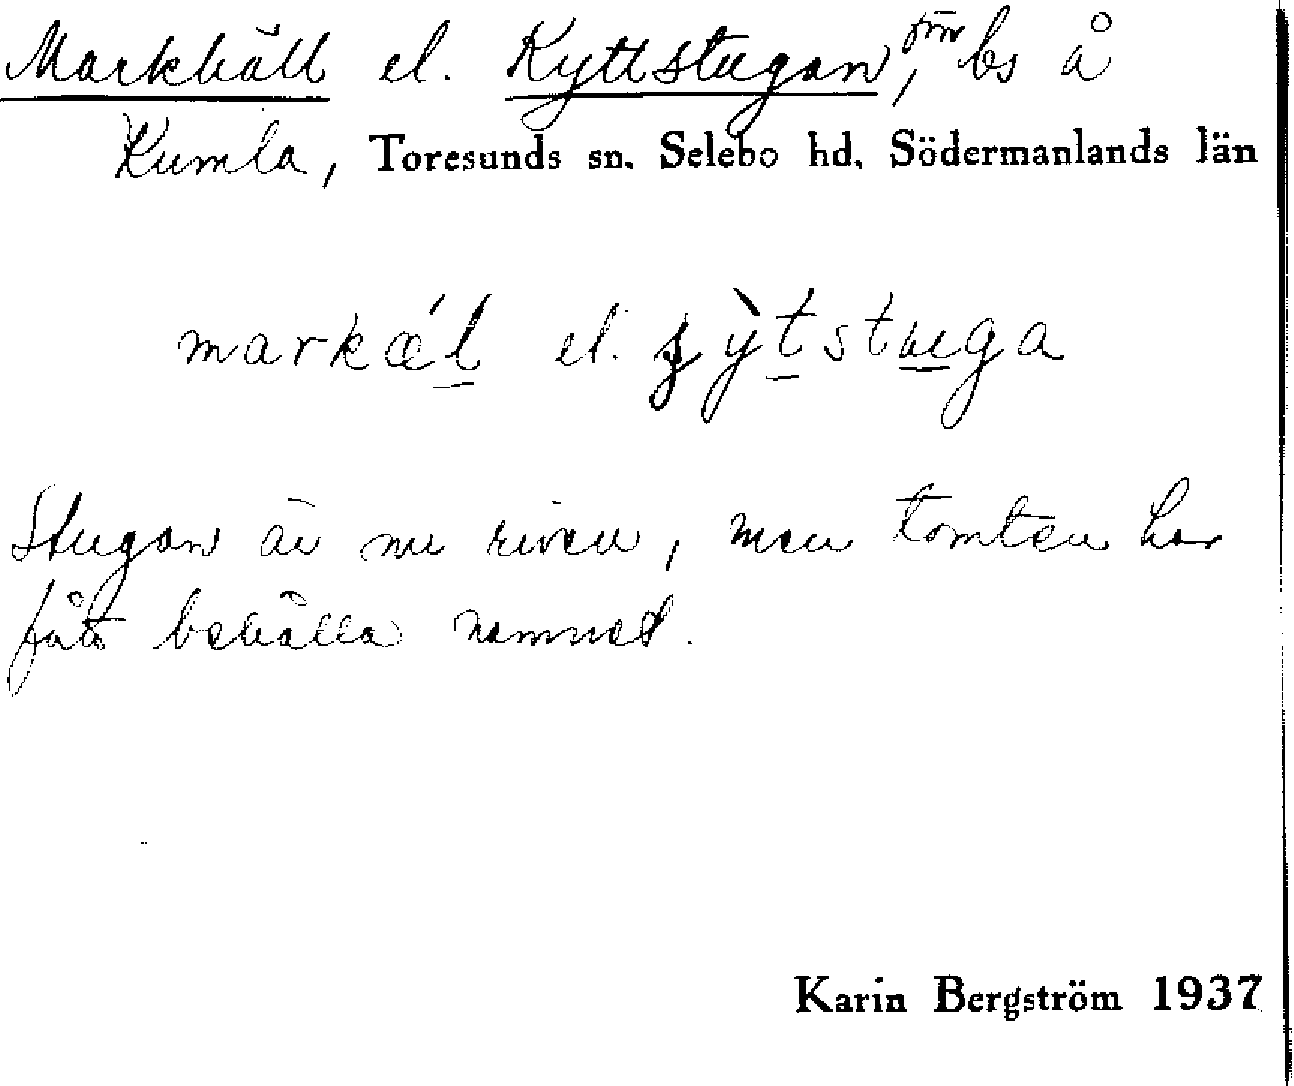 Markhäll el. Kyttstugan, förr bs å
Kumla, Toresunds sn. Selebo hd. Södermanlands län
markǽl el. ʂỳtstuga
Stugan är nu riven, men tomten har
fått behålla namnet.
Karin Bergström 1937